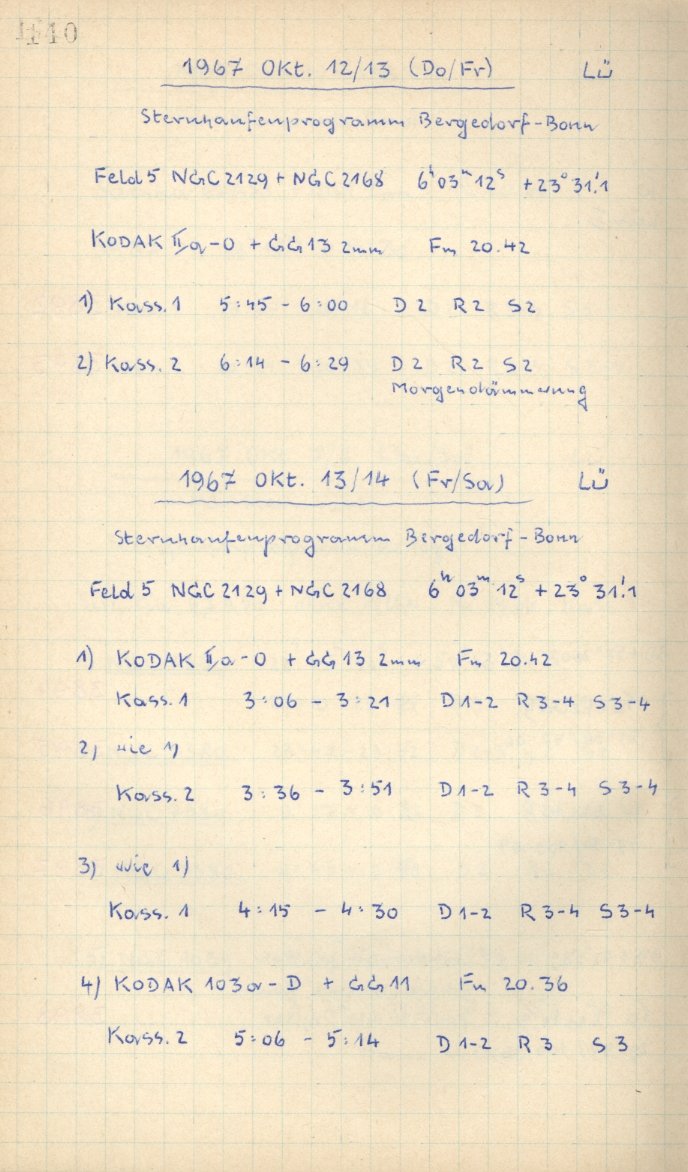 1967 Okt. 12/13 (Do/Fr) LÜ
Sternhaufenprogramm Bergedorf-Bonn
Feld 5 NGC 2129 + NGC 2168 6ʰ03ᵐ12ˢ +23°31!1
KODAK IIa-O + GG13 2mm Fn 20.42
1) Kass. 1 5:45 - 6:00 D2 R2 S2
2) Kass. 2 6:14 - 6:29 D2 R2 S2
Morgendämmerung
1967 Okt. 13/14 (Fr/Sa) LÜ
Sternhaufenprogramm Bergedorf-Bonn
Feld 5 NGC 2129 + NGC 2168 6ʰ03ᵐ12ˢ +23°31!1
1) KODAK IIa-O + GG13 2mm Fn 20.42
Kass. 1 3:06 - 3:21 D1-2 R3-4 S3-4
2) wie 1)
Kass. 2 3:36 - 3:51 D1-2 R3-4 S3-4
3) wie 1)
Kass. 1 4:15 - 4:30 D1-2 R3-4 S3-4
4) KODAK 103a-D + GG11 Fn 20.36
Kass. 2 5:06 - 5:14 D1-2 R3 S3